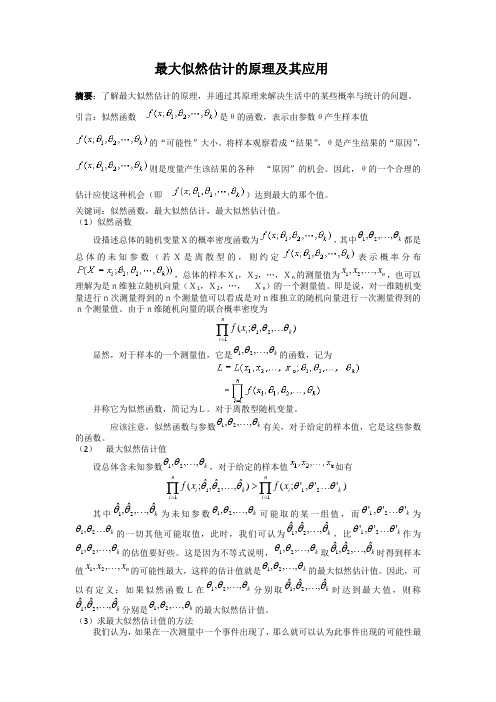 最大似然估计的原理及其应用
摘要：了解最大似然估计的原理，并通过其原理来解决生活中的某些概率与统计的问题。
引言：似然函数 f(x;θ₁,θ₂,…,θₖ)是θ的函数，表示由参数θ产生样本值
f(x;θ₁,θ₂,…,θₖ)的“可能性”大小。将样本观察看成“结果”，θ是产生结果的“原因”，
f(x;θ₁,θ₂,…,θₖ)则是度量产生该结果的各种 “原因”的机会。因此，θ的一个合理的
估计应使这种机会（即 f(x;θ₁,θ₂,…,θₖ)）达到最大的那个值。
关键词：似然函数，最大似然估计，最大似然估计值。
（1）似然函数
设描述总体的随机变量Ｘ的概率密度函数为f(x;θ₁,θ₂,…,θₖ)，其中θ₁,θ₂,…,θₖ都是
总体的未知参数（若Ｘ是离散型的，则约定f(x;θ₁,θ₂,…,θₖ)表示概率分布
P(X=xᵢ;θ₁,θ₂,…,θₖ)，总体的样本Ｘ₁，Ｘ₂，…，Ｘₙ的测量值为x₁,x₂,…,xₙ，也可以
理解为是ｎ维独立随机向量（Ｘ₁，Ｘ₂，…， Ｘₙ）的一个测量值。即是说，对一维随机变
量进行ｎ次测量得到的ｎ个测量值可以看成是对ｎ维独立的随机向量进行一次测量得到的
ｎ个测量值。由于ｎ维随机向量的联合概率密度为
∏ⁿᵢ₌₁ f(xᵢ;θ₁,θ₂,…θₖ)
显然，对于样本的一个测量值，它是θ₁,θ₂,…,θₖ的函数，记为
L=L(x₁,x₂,…,xₙ;θ₁,θ₂,…,θₖ)
=∏ⁿᵢ₌₁ f(xᵢ;θ₁,θ₂,…,θₖ)
并称它为似然函数，简记为Ｌ。对于离散型随机变量。
应该注意，似然函数与参数θ₁,θ₂,…,θₖ有关，对于给定的样本值，它是这些参数
的函数。
（2） 最大似然估计值
设总体含未知参数θ₁,θ₂,…,θₖ，对于给定的样本值x₁,x₂,…,xₙ如有
∏ⁿᵢ₌₁ f(xᵢ;θ̂₁,θ̂₂,…,θ̂ₖ)>∏ⁿᵢ₌₁ f(xᵢ;θ'₁,θ'₂…θ'ₖ)
其中θ̂₁,θ̂₂,…,θ̂ₖ为未知参数θ₁,θ₂,…,θₖ可能取的某一组值，而θ'₁,θ'₂…θ'ₖ为
θ₁,θ₂…θₖ的一切其他可能取值，此时，我们可认为θ̂₁,θ̂₂,…,θ̂ₖ，比θ'₁,θ'₂…θ'ₖ作为
θ₁,θ₂,…,θₖ的估值要好些。这是因为不等式说明，θ₁,θ₂,…,θₖ取θ̂₁,θ̂₂,…,θ̂ₖ时得到样本
值x₁,x₂,…,xₙ的可能性最大，这样的估计值就是θ₁,θ₂,…,θₖ的最大似然估计值。因此，可
以有定义：如果似然函数Ｌ在θ₁,θ₂,…,θₖ分别取θ̂₁,θ̂₂,…,θ̂ₖ时达到最大值，则称
θ̂₁,θ̂₂,…,θ̂ₖ分别是θ₁,θ₂,…,θₖ的最大似然估计值。
（3）求最大似然估计值的方法
我们认为，如果在一次测量中一个事件出现了，那么就可以认为此事件出现的可能性最